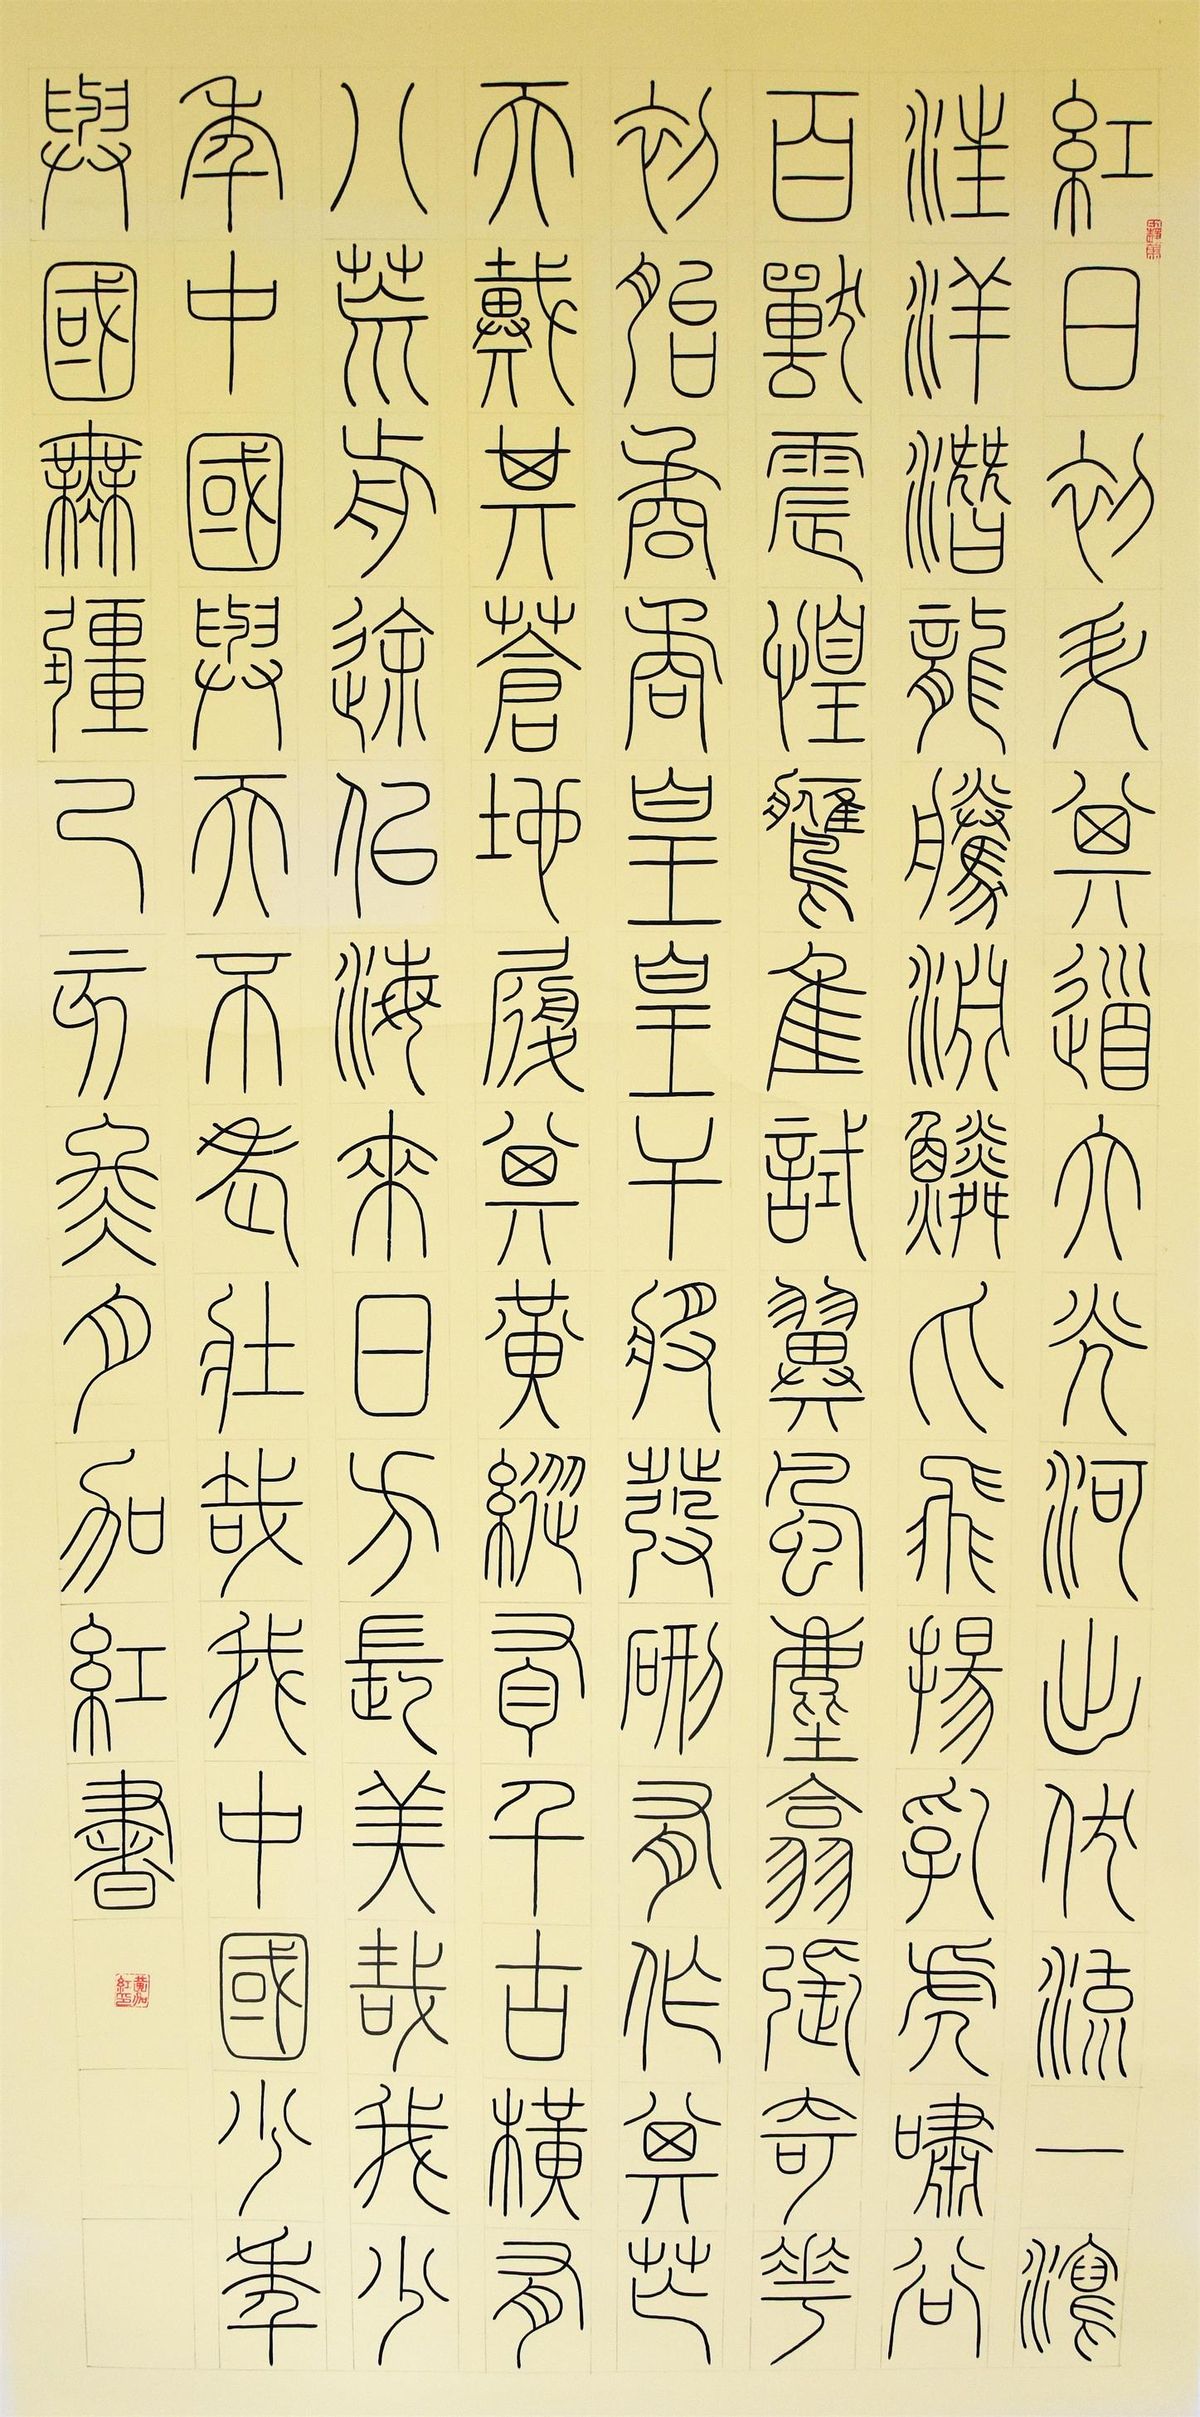 紅日初升其道大光河出伏流一瀉
汪洋潛龍騰淵鱗爪飛揚乳虎嘯谷
百獸震惶鷹隼試翼風塵翕張奇花
初胎矞矞皇皇干將發硎有作其芒
天戴其蒼地履其黃縱有千古橫有
八荒前途似海來日方長美哉我少
年中國與天不老壯哉我中國少年
與國無疆己亥冬月加紅書
黃加紅印